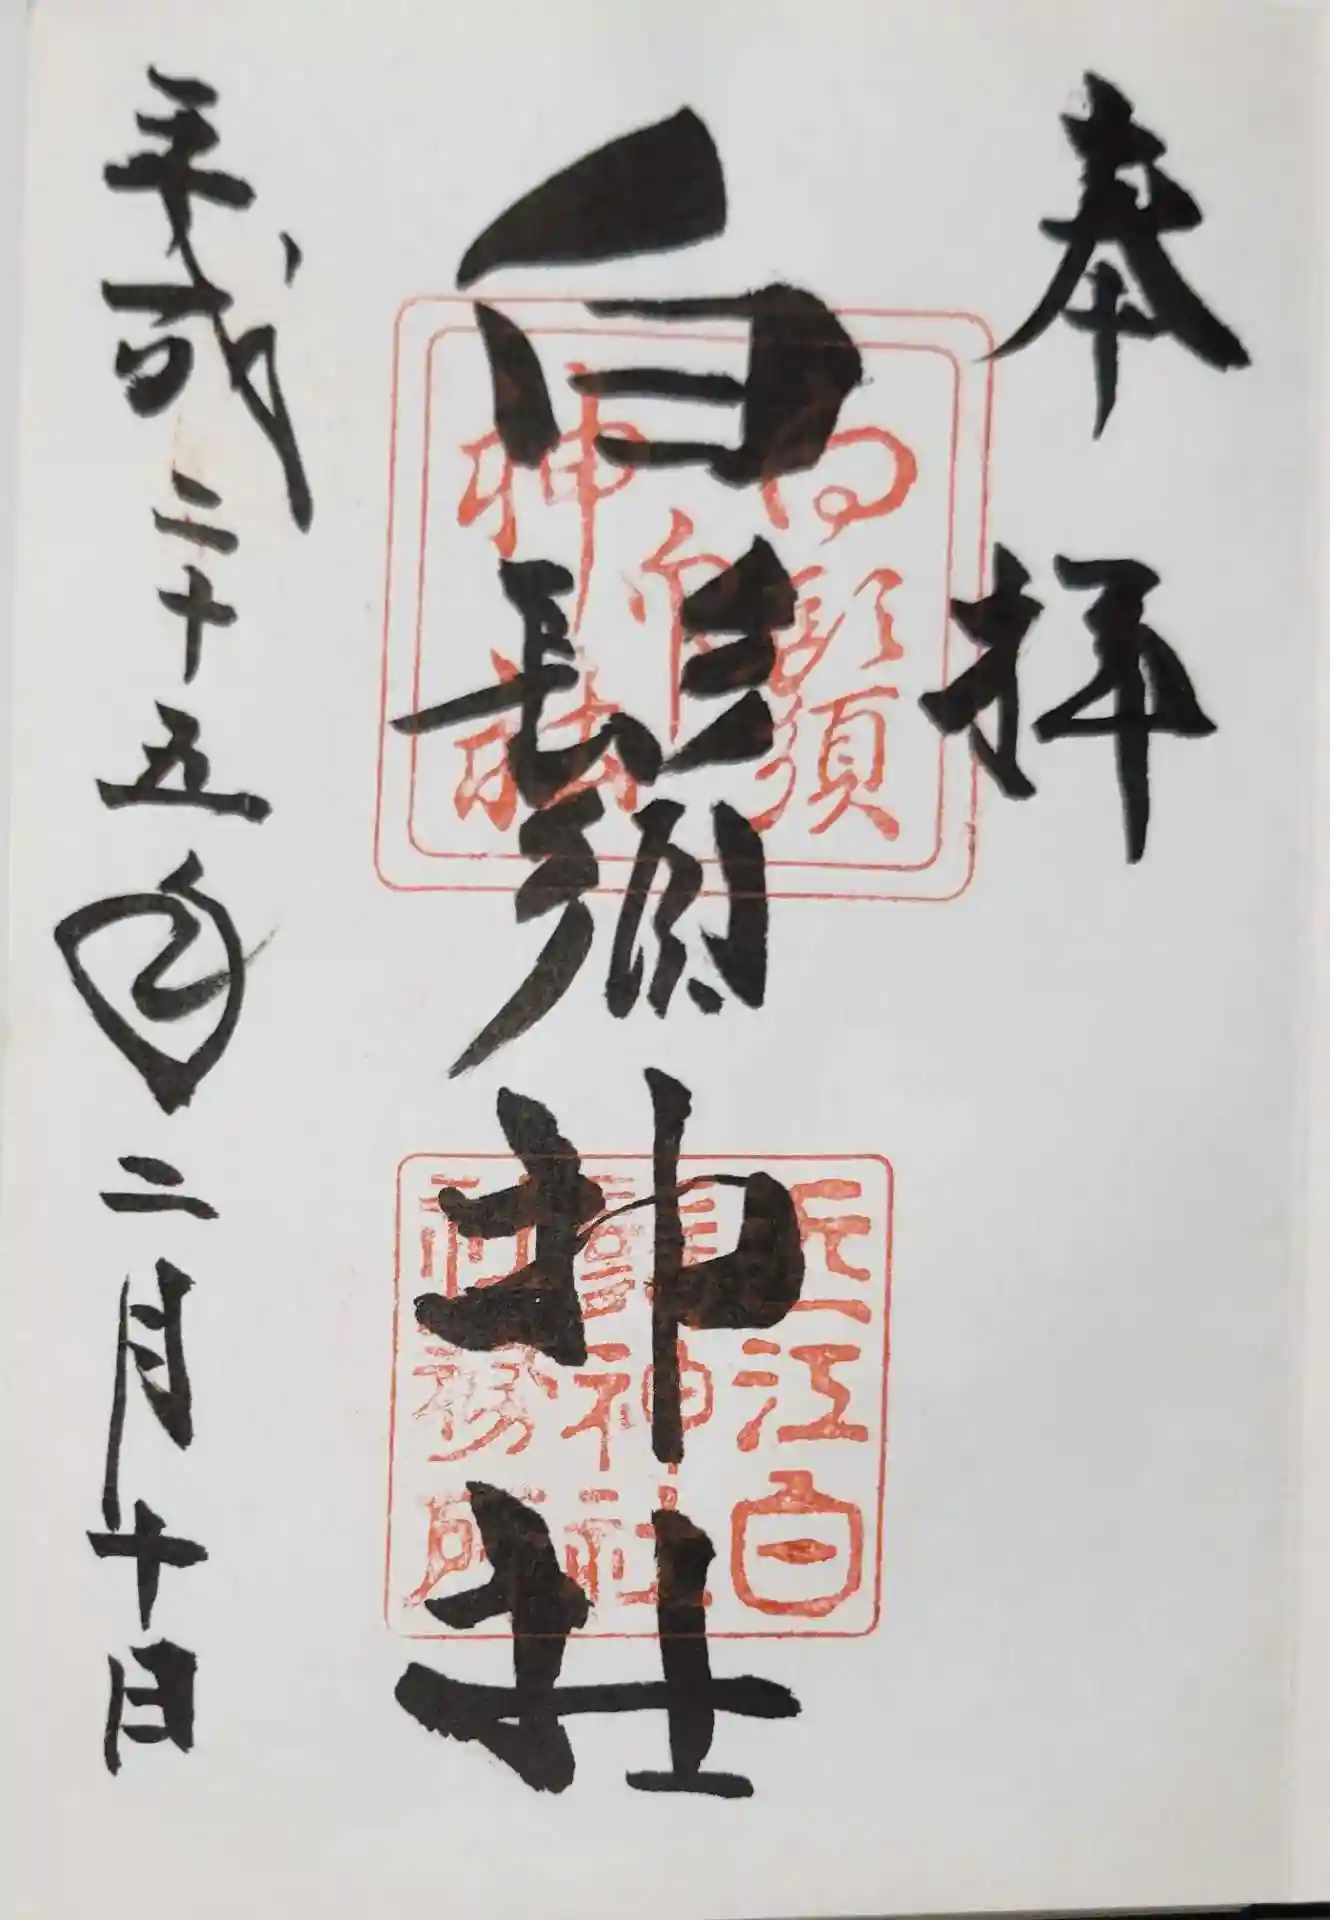 奉拝
白鬚神社
平成二十五年二月十日
白鬚
神社
近江白
鬚神社
社務所